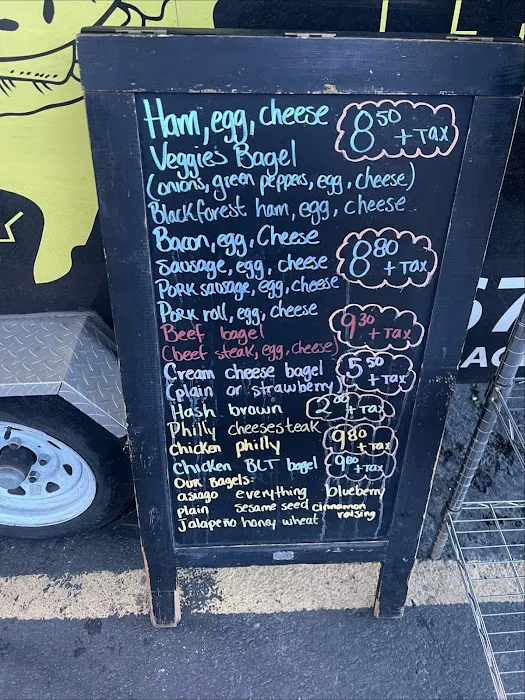 Ham, egg, cheese 8 50 + Tax
Veggies Bagel
(onions, green peppers, egg, cheese)
Blackforest ham, egg, cheese
Bacon, egg, Cheese 8 80 + Tax
Sausage, egg, cheese
Pork sausage, egg, cheese
Pork roll, egg, cheese
Beef bagel 9 30 + Tax
(beef steak, egg, cheese)
Cream cheese bagel 5 50 + Tax
(plain or strawberry)
Hash brown 2 00 + Tax
Philly cheesesteak
chicken philly 9 80 + Tax
Chicken BLT bagel + Tax
Our Bagels:
asiago everything blueberry
plain sesame seed cinnamon raising
Jalapeño honey wheat